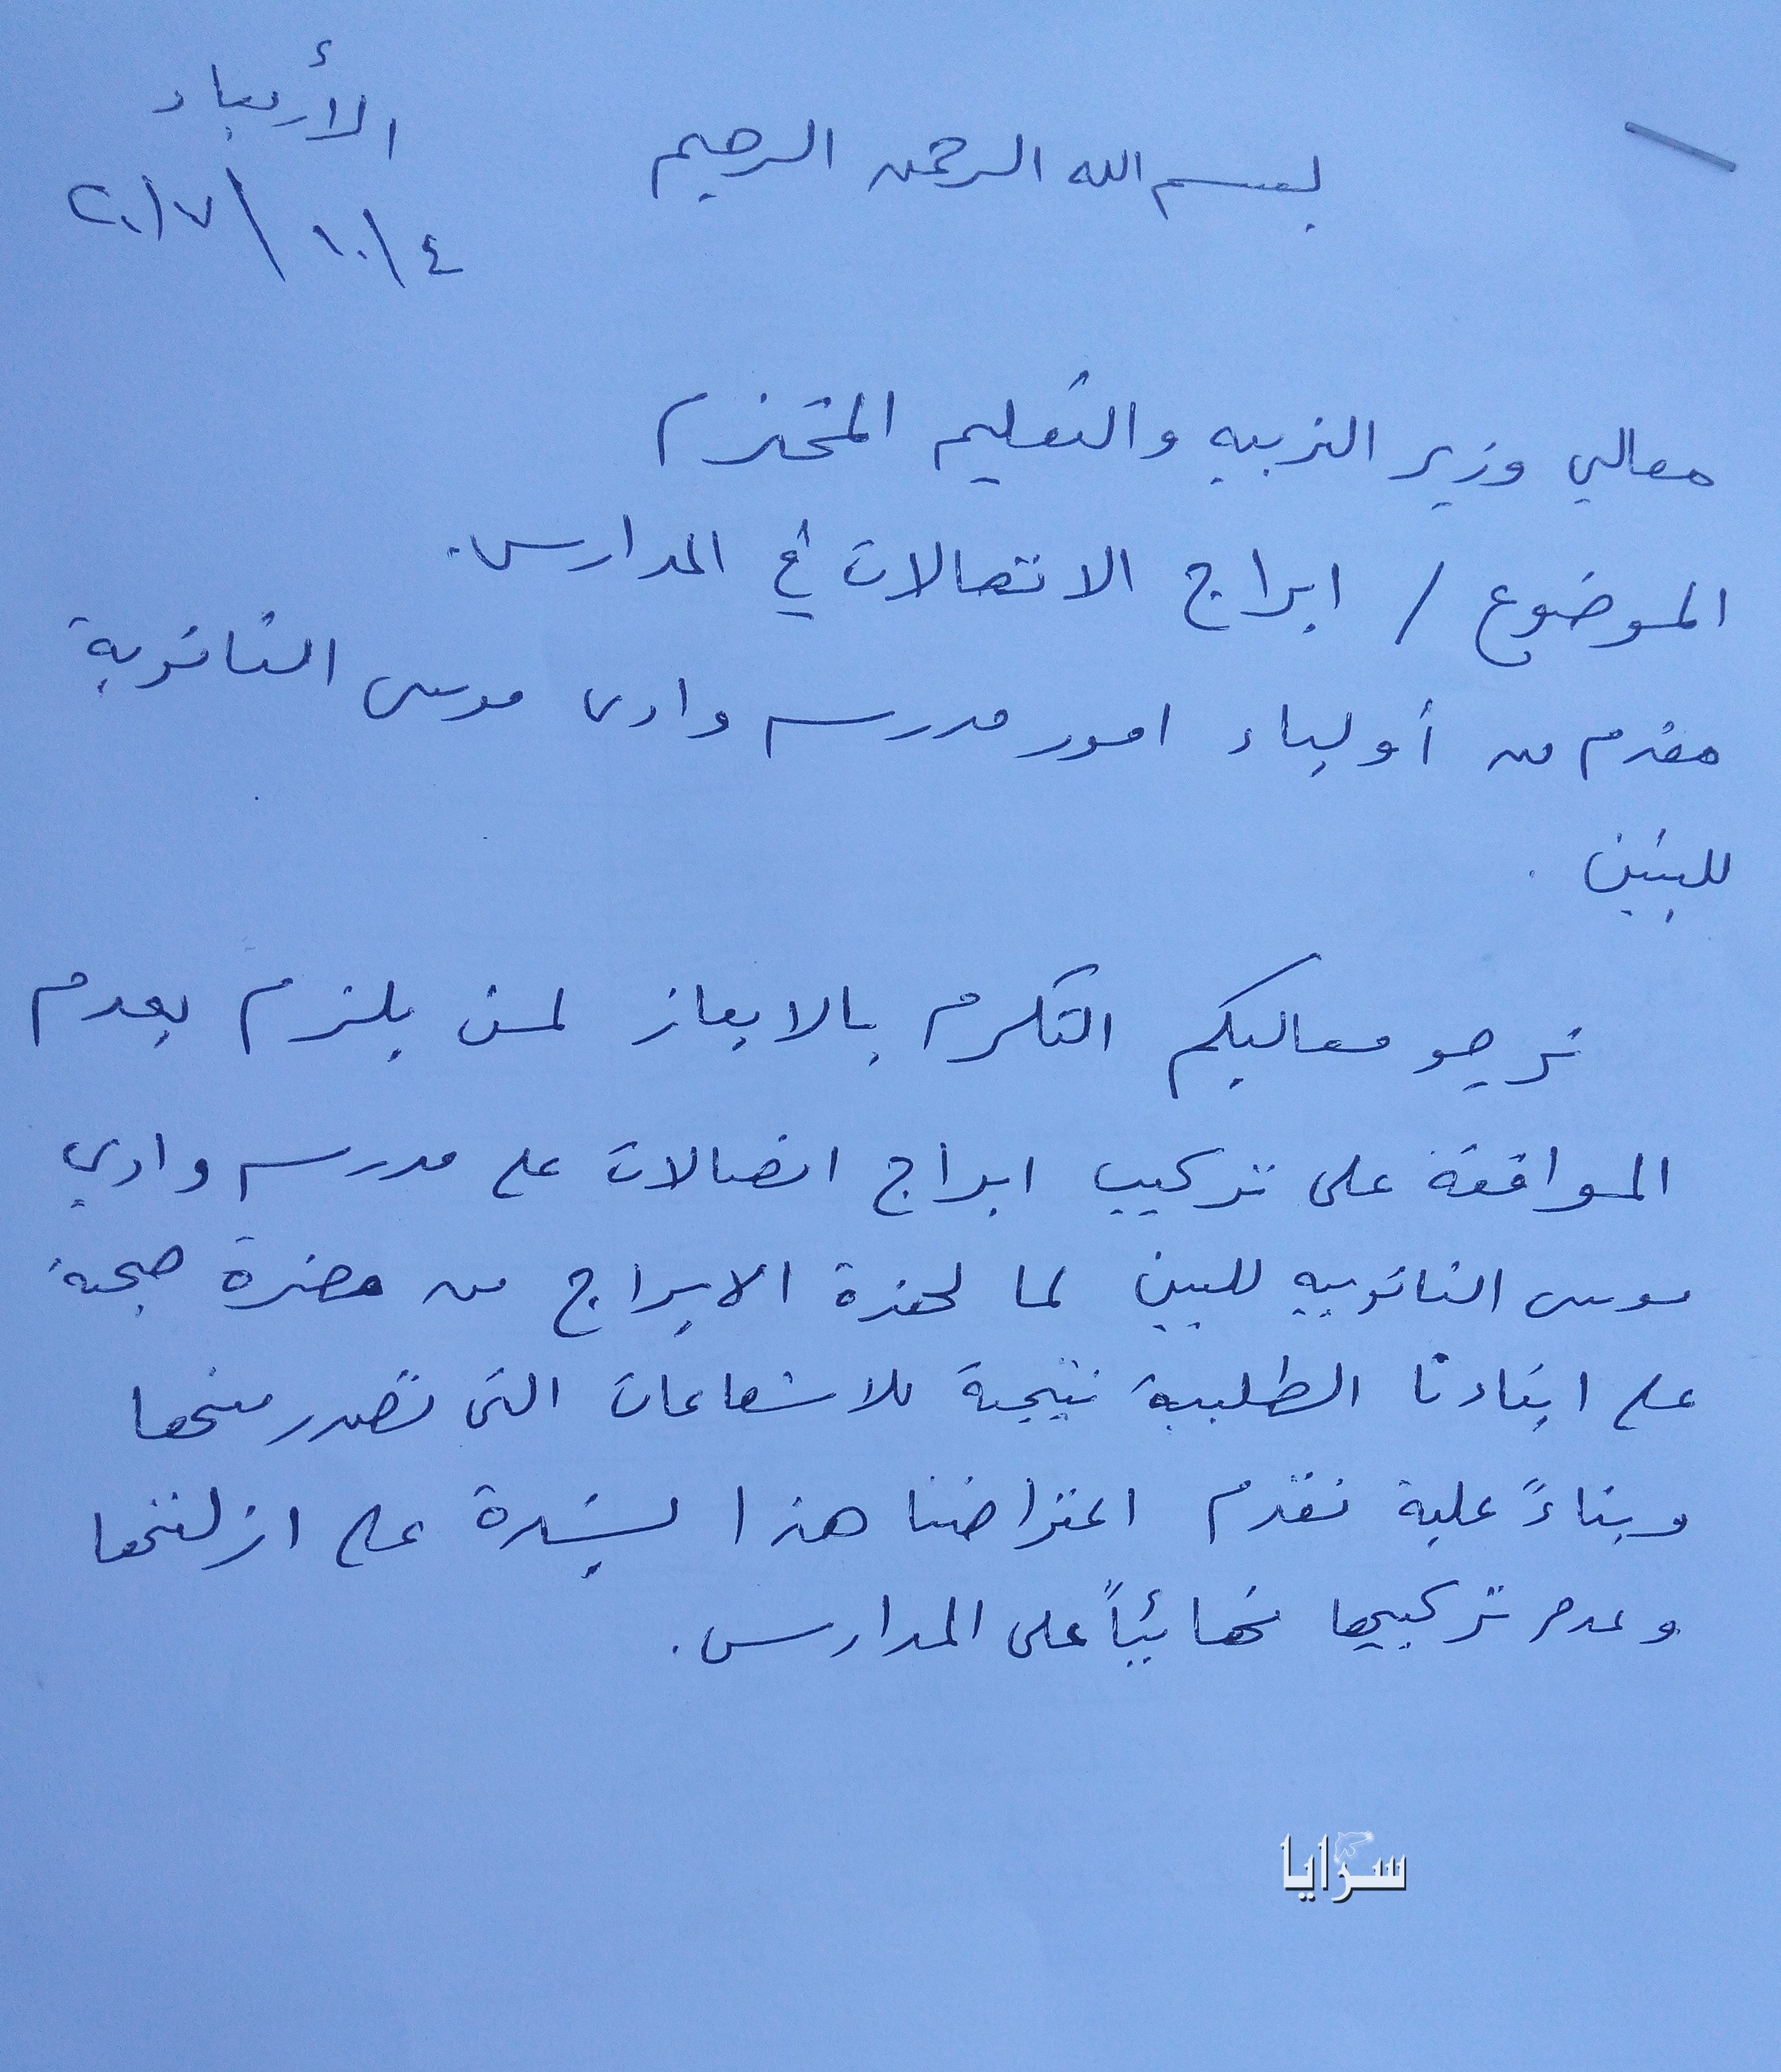 الأربعاء
بسم الله الرحمن الرحيم
٤/١٠/٢٠١٧
معالي وزير التربيه والتعليم المحترم
الموضوع / ابراج الاتصالات في المدارس.
مقدم من أولياء امور مدرسه وادى موسى الثانوية
للبنين .
نرجو معاليكم التكرم بالايعاز لمن يلزم بعدم
الموافقة على تركيب ابراج اتصالات على مدرسه وادي
موسى الثانوييه للبنين لما لهذة الابراج من مضرة صحية
على ابناءنا الطلبة نتيجة للاشعاعات التي تصدر منها
وبناءً علية نقدم اعتراضنا هذا بشدة على ازلتها
وعدم تركيبها نهائياً على المدارس.
سرايا